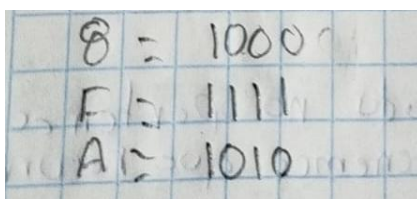 8 = 1000
F = 1111
A = 1010